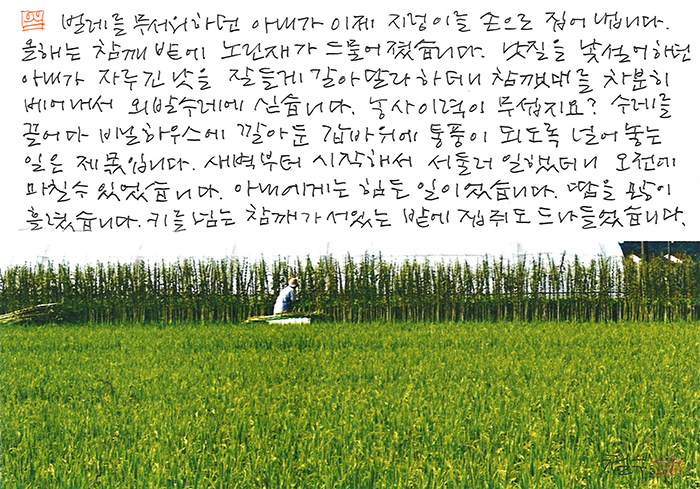 벌레를 무서워하던 아내가 이제 지렁이를 손으로 집어 냅니다.
올해는 참깨 밭에 노린재가 드물어졌습니다. 낫질을 낯설어하던
아내가 자루긴낫을 잘들게 갈아달라 하더니 참깻대를 차분히
베어내서 외발수레에 싣습니다. 농사이력이 무섭지요? 수레를
끌어다 비닐하우스에 깔아둔 갑바위에 통풍이 되도록 널어놓는
일은 제 몫입니다. 새벽부터 시작해서 서둘러 일했더니 오전에
마칠수 있었습니다. 아내에게는 힘든 일이었습니다. 땀을 많이
흘렸습니다. 키를 넘는 참깨가 서있는 밭에 들쥐도 드나들었습니다.